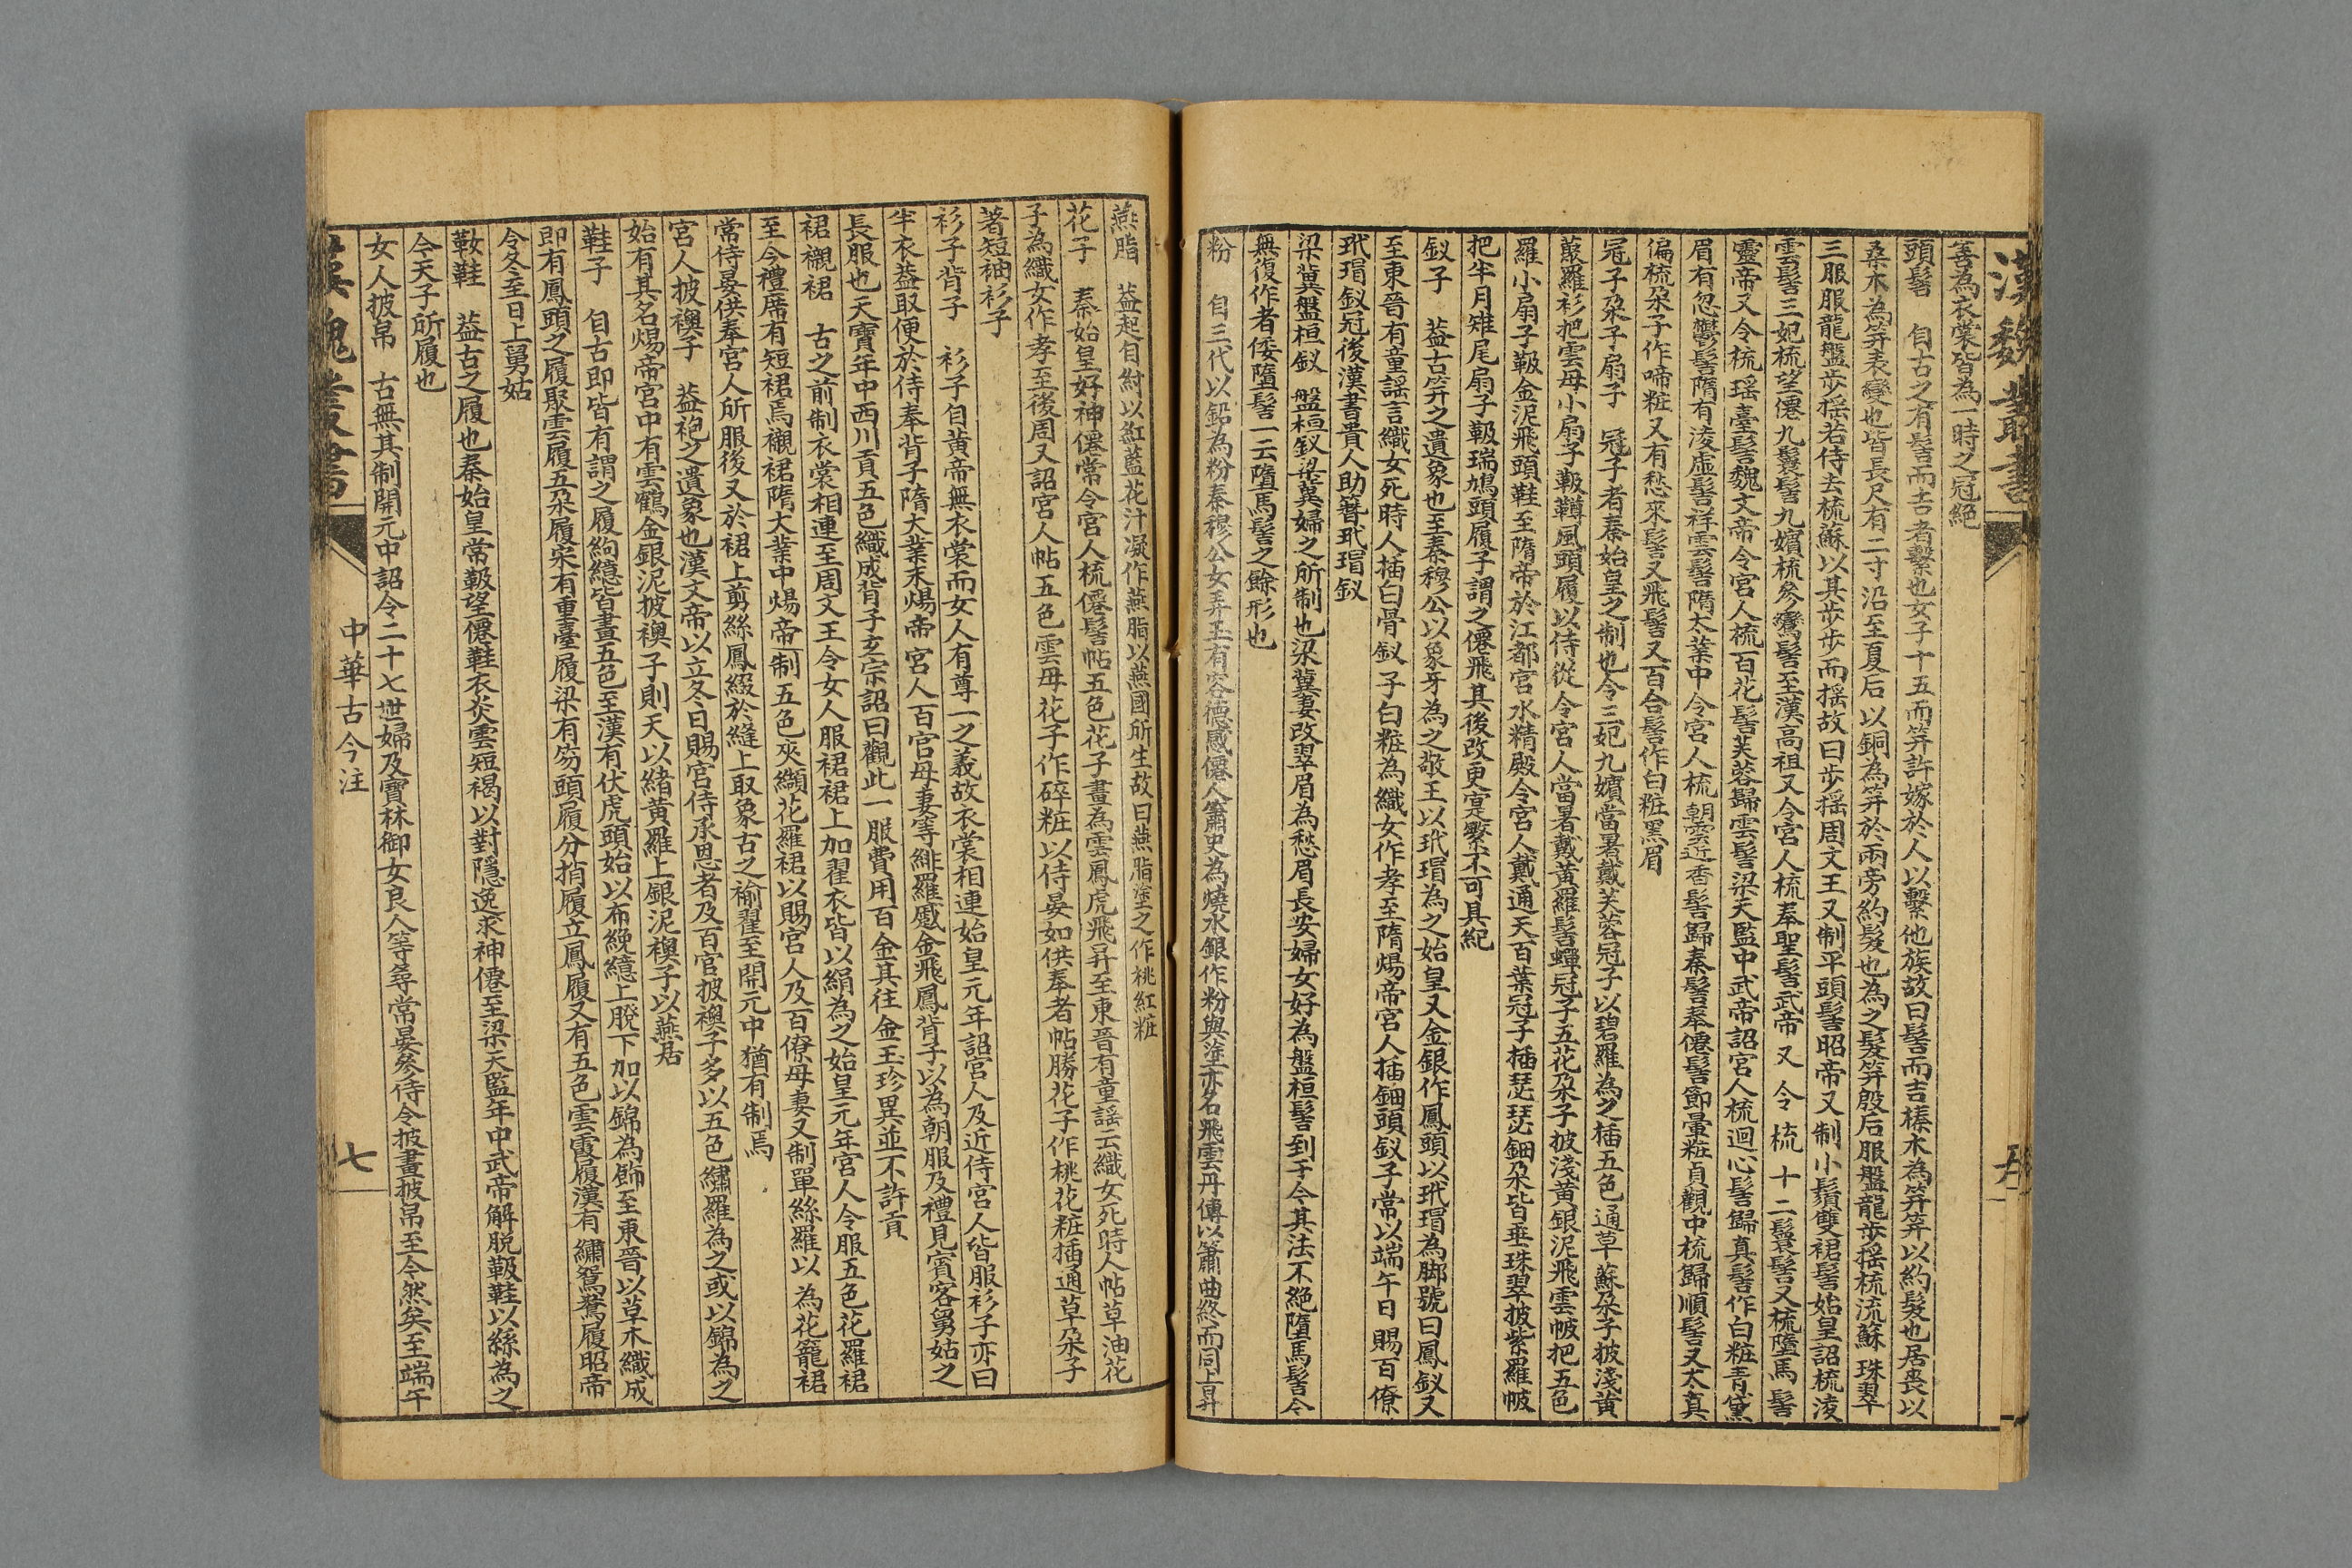 漢魏叢書
善為衣裳皆為一時之冠絕
頭髻 自古之有髻而吉者繫也女子十五而笄許嫁於人以繫他族故曰髻而吉榛木為笄笄以約髮也居喪以
桑木為笄表變也皆長尺有二寸沿至夏后以銅為笄於兩旁約髮也為之髮笄殷后服盤龍步摇梳流蘇珠翠
三服服龍盤步摇若侍去梳蘇以其步步而摇故曰步摇周文王又制平頭髻昭帝又制小鬚雙裙髻始皇詔梳淩
雲髻三妃梳望僊九鬟髻九嬪梳參鸞髻至漢高祖又令宮人梳奉聖髻武帝又令梳十二鬟髻又梳墮馬髻
靈帝又令梳瑶臺髻魏文帝令宮人梳百花髻芙蓉歸雲髻梁天監中武帝詔宮人梳迴心髻歸真髻作白粧青黛
眉有忽鬱髻隋有淩虛髻祥雲髻隋大業中令宮人梳朝雲近香髻歸秦髻奉僊髻節暈粧貞觀中梳歸順髻又太真
偏梳朶子作啼粧又有愁來髻又飛髻又百合髻作白粧黑眉
冠子朶子扇子 冠子者秦始皇之制也令三妃九嬪當暑戴芙蓉冠子以碧羅為之插五色通草蘇朶子披淺黃
藂羅衫把雲母小扇子靸蹲鳳頭履以侍從令宮人當暑戴黃羅髻蟬冠子五花朶子披淺黃銀泥飛雲帔把五色
羅小扇子靸金泥飛頭鞋至隋帝於江都宮水精殿令宮人戴通天百葉冠子插瑟瑟鈿朶皆垂珠翠披紫羅帔
把半月雉尾扇子靸瑞鳩頭履子謂之僊飛其後改更寔繁不可具紀
釵子 葢古笄之遺象也至秦穆公以象牙為之敬王以玳瑁為之始皇又金銀作鳳頭以玳瑁為脚號曰鳳釵又
至東晉有童謠言織女死時人插白骨釵子白粧為織女作孝至隋煬帝宮人插鈿頭釵子常以端午日賜百僚
玳瑁釵冠後漢書貴人助簪玳瑁釵
梁冀盤桓釵 盤桓釵梁冀婦之所制也梁冀妻改翠眉為愁眉長安婦女好為盤桓髻到于今其法不絕墮馬髻今
無復作者倭墮髻一云墮馬髻之餘形也
粉 自三代以鉛為粉秦穆公女弄玉有容德感僊人簫史為燒水銀作粉與塗亦名飛雲丹傳以簫曲終而同上昇
燕脂 葢起自紂以紅藍花汁凝作燕脂以燕國所生故曰燕脂塗之作桃紅粧
花子 秦始皇好神僊常令宮人梳僊髻帖五色花子畫為雲鳳虎飛昇至東晉有童謠云織女死時人帖草油花
子為織女作孝至後周又詔宮人帖五色雲母花子作碎粧以侍宴如供奉者帖勝花子作桃花粧插通草朶子
著短袖衫子
衫子背子 衫子自黃帝無衣裳而女人有尊一之義故衣裳相連始皇元年詔宮人及近侍宮人皆服衫子亦曰
半衣葢取便於侍奉背子隋大業末煬帝宮人百官母妻等緋羅蹙金飛鳳背子以為朝服及禮見賓客舅姑之
長服也天寶年中西川貢五色織成背子玄宗詔曰觀此一服費用百金其往金玉珍異並不許貢
裙襯裙 古之前制衣裳相連至周文王令女人服裙裙上加翟衣皆以絹為之始皇元年宮人令服五色花羅裙
至今禮席有短裙焉襯裙隋大業中煬帝制五色夾纈花羅裙以賜宮人及百僚母妻又制單絲羅以為花籠裙
常侍宴供奉宮人所服後又於裙上剪絲鳳綴於縫上取象古之褕翟至開元中猶有制焉
宮人披襖子 葢袍之遺象也漢文帝以立冬日賜宮侍承恩者及百官披襖子多以五色繡羅為之或以錦為之
始有其名煬帝宮中有雲鶴金銀泥披襖子則天以緒黃羅上銀泥襖子以燕居
鞋子 自古即皆有謂之履絇繶皆畫五色至漢有伏虎頭始以布絻繶上脫下加以錦為飾至東晉以草木織成
即有鳳頭之履聚雲履五朶履宋有重臺履梁有笏頭履分捎履立鳳履又有五色雲霞履漢有繡鴛鴦履昭帝
令冬至日上舅姑
靸鞋 葢古之履也秦始皇常靸望僊鞋衣炎雲短褐以對隱逸求神僊至梁天監年中武帝解脫靸鞋以絲為之
今天子所履也
女人披帛 古無其制開元中詔令二十七世婦及寶林御女良人等尋常宴參侍令披畫披帛至今然矣至端午
漢魏叢書 中華古今注 七